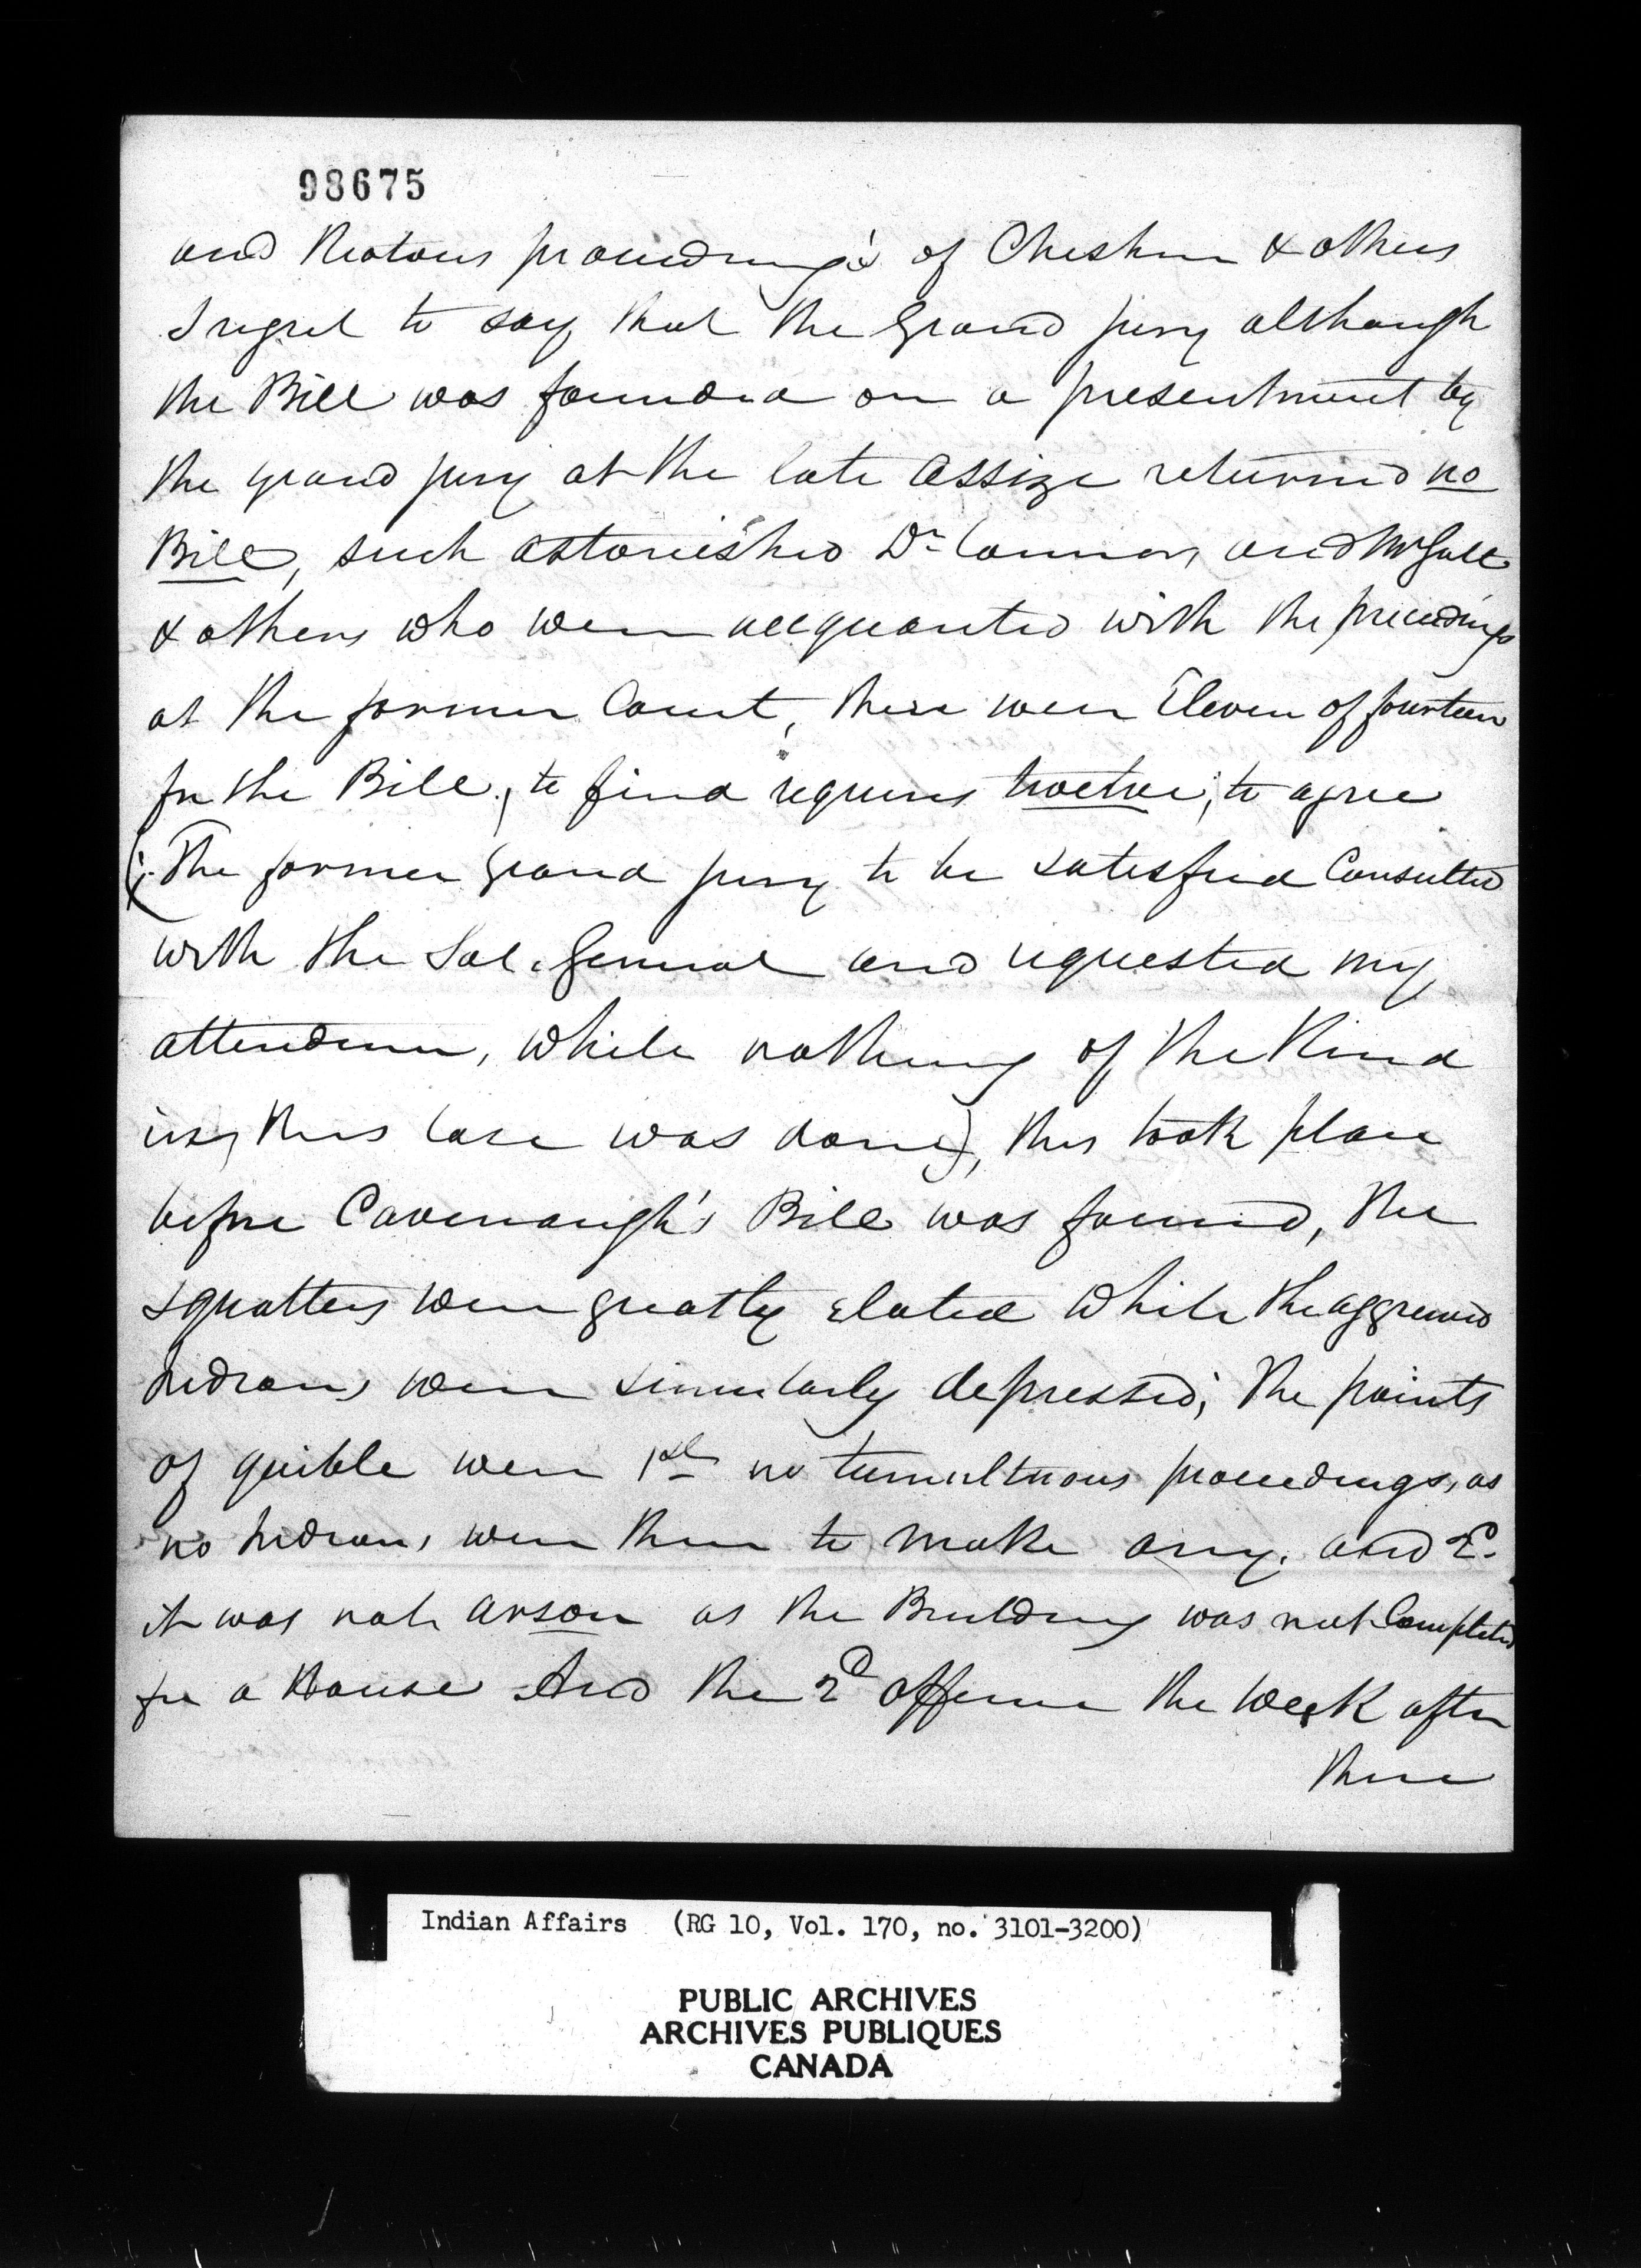 98675
and Riotous proceedings of Cheshire & others
I regret to say that the Grand jury although
the Bill was founded on a presentment by
the grand jury at the late Assize returned no
Bill, such astonished Dr Connor, and Mr Galt
& others who were acquanted with the preceedings
at the former Court, there were Eleven of fourteen
for the Bill, to find requires twelve, to agree
(The former Grand jury to be satisfied Consulted
with the Sol. General and requested my
attendence, while nothing of the Kind
in this case was done), this took place
before Cavenaugh's Bill was found, the
squatters were greatly elated while the aggreived
Indians were similarly depressed; the points
of quible were 1st no tumultuous proceedings, as
no Indians were there to make any, and 2d
it was not arson as the Building was not Completed
for a House And the 2d offence the Week after
there
Indian Affairs (RG 10, Vol. 170, no. 3101-3200)
PUBLIC ARCHIVES
ARCHIVES PUBLIQUES
CANADA